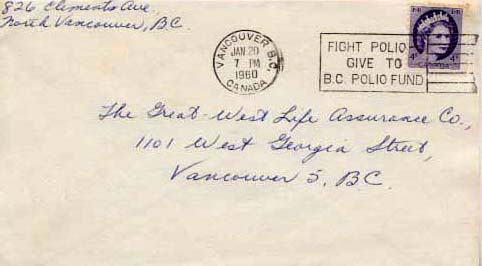 826 Clements Ave.
North Vancouver, B.C.
VANCOUVER B.C.
JAN 20
7 PM
1960
CANADA
FIGHT POLIO
GIVE TO
B.C. POLIO FUND
The Great-West Life Assurance Co.,
1101 West Georgia Street,
Vancouver 5, B.C.